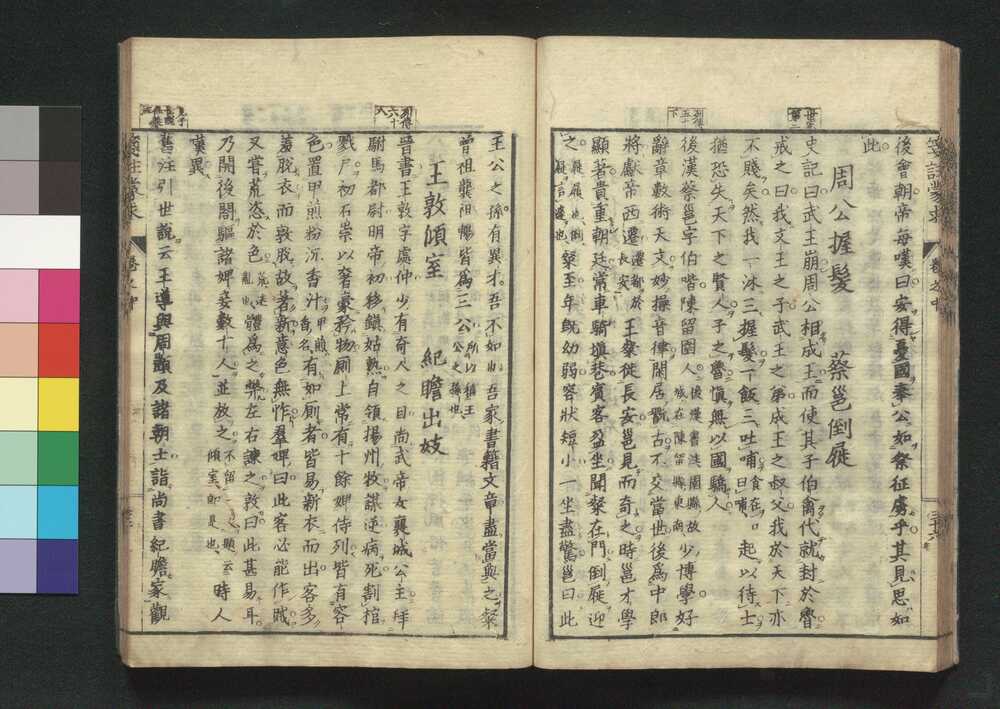 後會朝帝每嘆曰安得憂國奉公如祭征虜乎其見思如
此
周公握髮 蔡邕倒屣
史記曰武王崩周公相成王而使其子伯禽代就封於魯
戒之曰我文王之子武王之弟成王之叔父我於天下亦
不賤矣然我一沐三握髮一飯三吐哺食在口曰哺起以待士
猶恐失天下之賢人子之魯愼無以國驕人
後漢蔡邕字伯喈陳留圉人後漢書注圉縣故城在陳留縣東南少博學好
辭章數術天文妙操音律閑居翫古不交當世後爲中郎
將獻帝西遷遷都於長安王粲徙長安邕見而奇之時邕才學
顯著貴重朝廷常車騎填巷賓客盈坐聞粲在門倒屣迎
之屣履也倒屣言遽也粲至年既幼弱容狀短小一坐盡驚邕曰此
王公之孫有異才吾不如也吾家書籍文章盡當與之粲
曾祖龔祖暢皆爲三公所以稱王公之孫也
王敦傾室 紀瞻出妓
晉書王敦字處仲少有奇人之目尚武帝女襄城公主拜
駙馬都尉明帝初移鎭姑熟自領揚州牧謀逆病死剖棺
戮尸初石崇以奢豪矜物厠上常有十餘婢侍列皆有容
色置甲煎粉沉香汁甲煎香名有如厠者皆易新衣而出客多
羞脫衣而敦脫故著新意色無怍羣婢曰此客必能作賊
又嘗荒恣於色荒迷亂也體爲之弊左右諫之敦曰此甚易耳
乃開後閤驅諸婢妾數十人並放之時人
嘆異
舊注引世說云王導與周顗及諸朝士詣尚書紀瞻家觀